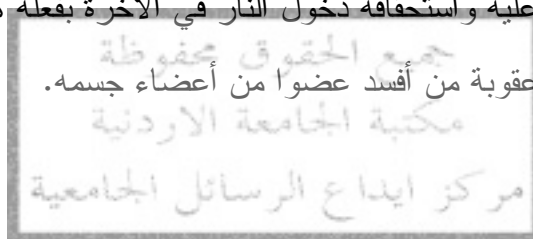 عليه واستحقاقه دخول النار في الآخرة بفعله
جميع الحقوق محفوظة
عقوبة من أفسد عضوا من أعضاء جسمه.
مكتبة الجامعة الاردنية
مركز ايداع الرسائل الجامعية